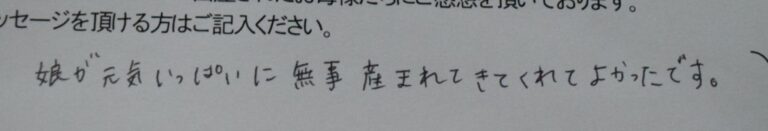 ッセージを頂ける方はご記入ください。
娘が元気いっぱいに無事産まれてきてくれてよかったです。